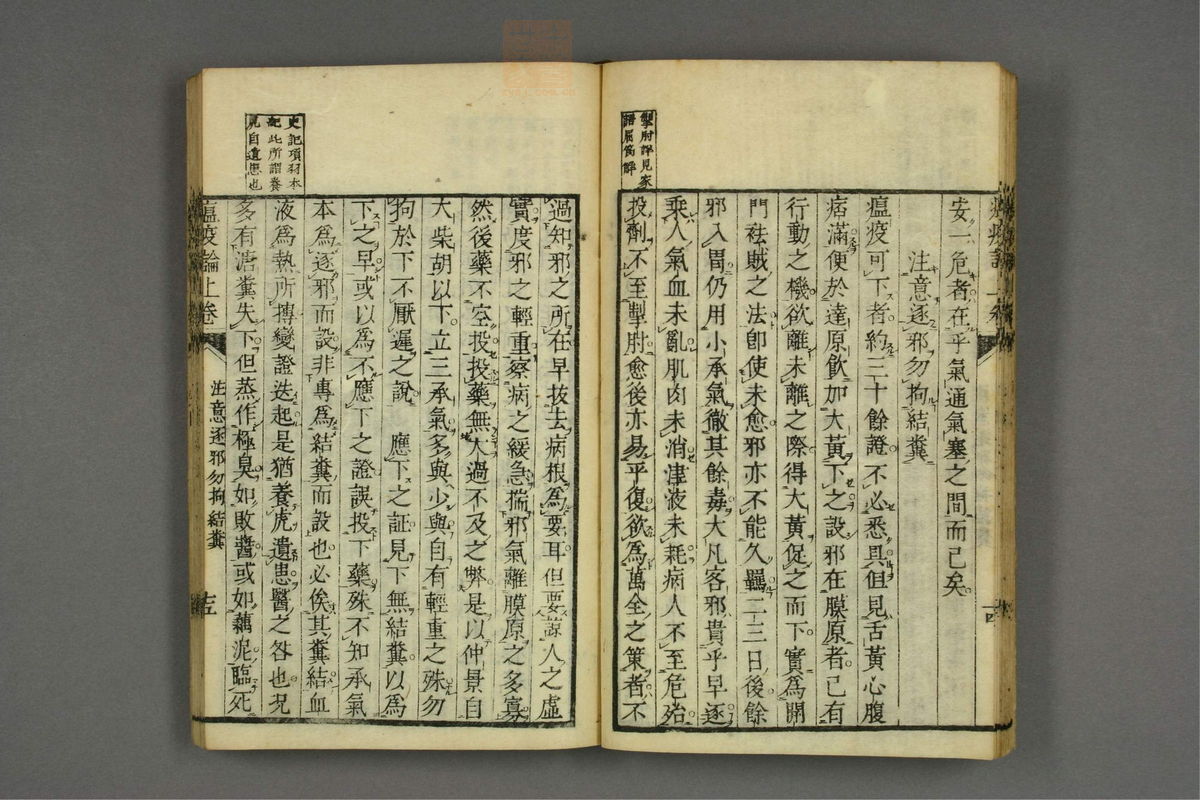 掣肘詳見家
語屈節解
安一危者在乎氣通氣塞之間而已矣
注意逐邪勿拘結糞
瘟疫可下者約三十餘證不必悉具但見舌黃心腹
痞滿便於達原飲加大黃下之設邪在膜原者已有
行動之機欲離未離之際得大黃促之而下實爲開
門祛賊之法卽使未愈邪亦不能久羈二三日後餘
邪入胃仍用小承氣徹其餘毒大凡客邪貴乎早逐
乘人氣血未亂肌肉未消津液未耗病人不至危殆
投劑不至掣肘愈後亦易平復欲爲萬全之策者不
十四
史記項羽本
紀此所謂養
虎自遺患也
過知邪之所在早拔去病根爲要耳但要諒人之虛
實度邪之輕重察病之緩急揣邪氣離膜原之多寡
然後藥不空投投藥無太過不及之弊是以仲景自
大柴胡以下立三承氣多與少與自有輕重之殊勿
拘於下不厭遲之說 應下之証見下無結糞以爲
下之早或以爲不應下之證誤投下藥殊不知承氣
本爲逐邪而設非專爲結糞而設也必俟其糞結血
液爲熱所搏變證迭起是猶養虎遺患醫之咎也况
多有溏糞失下但蒸作極臭如敗醬或如藕泥臨死
瘟疫論上卷
注意逐邪勿拘結糞
十五